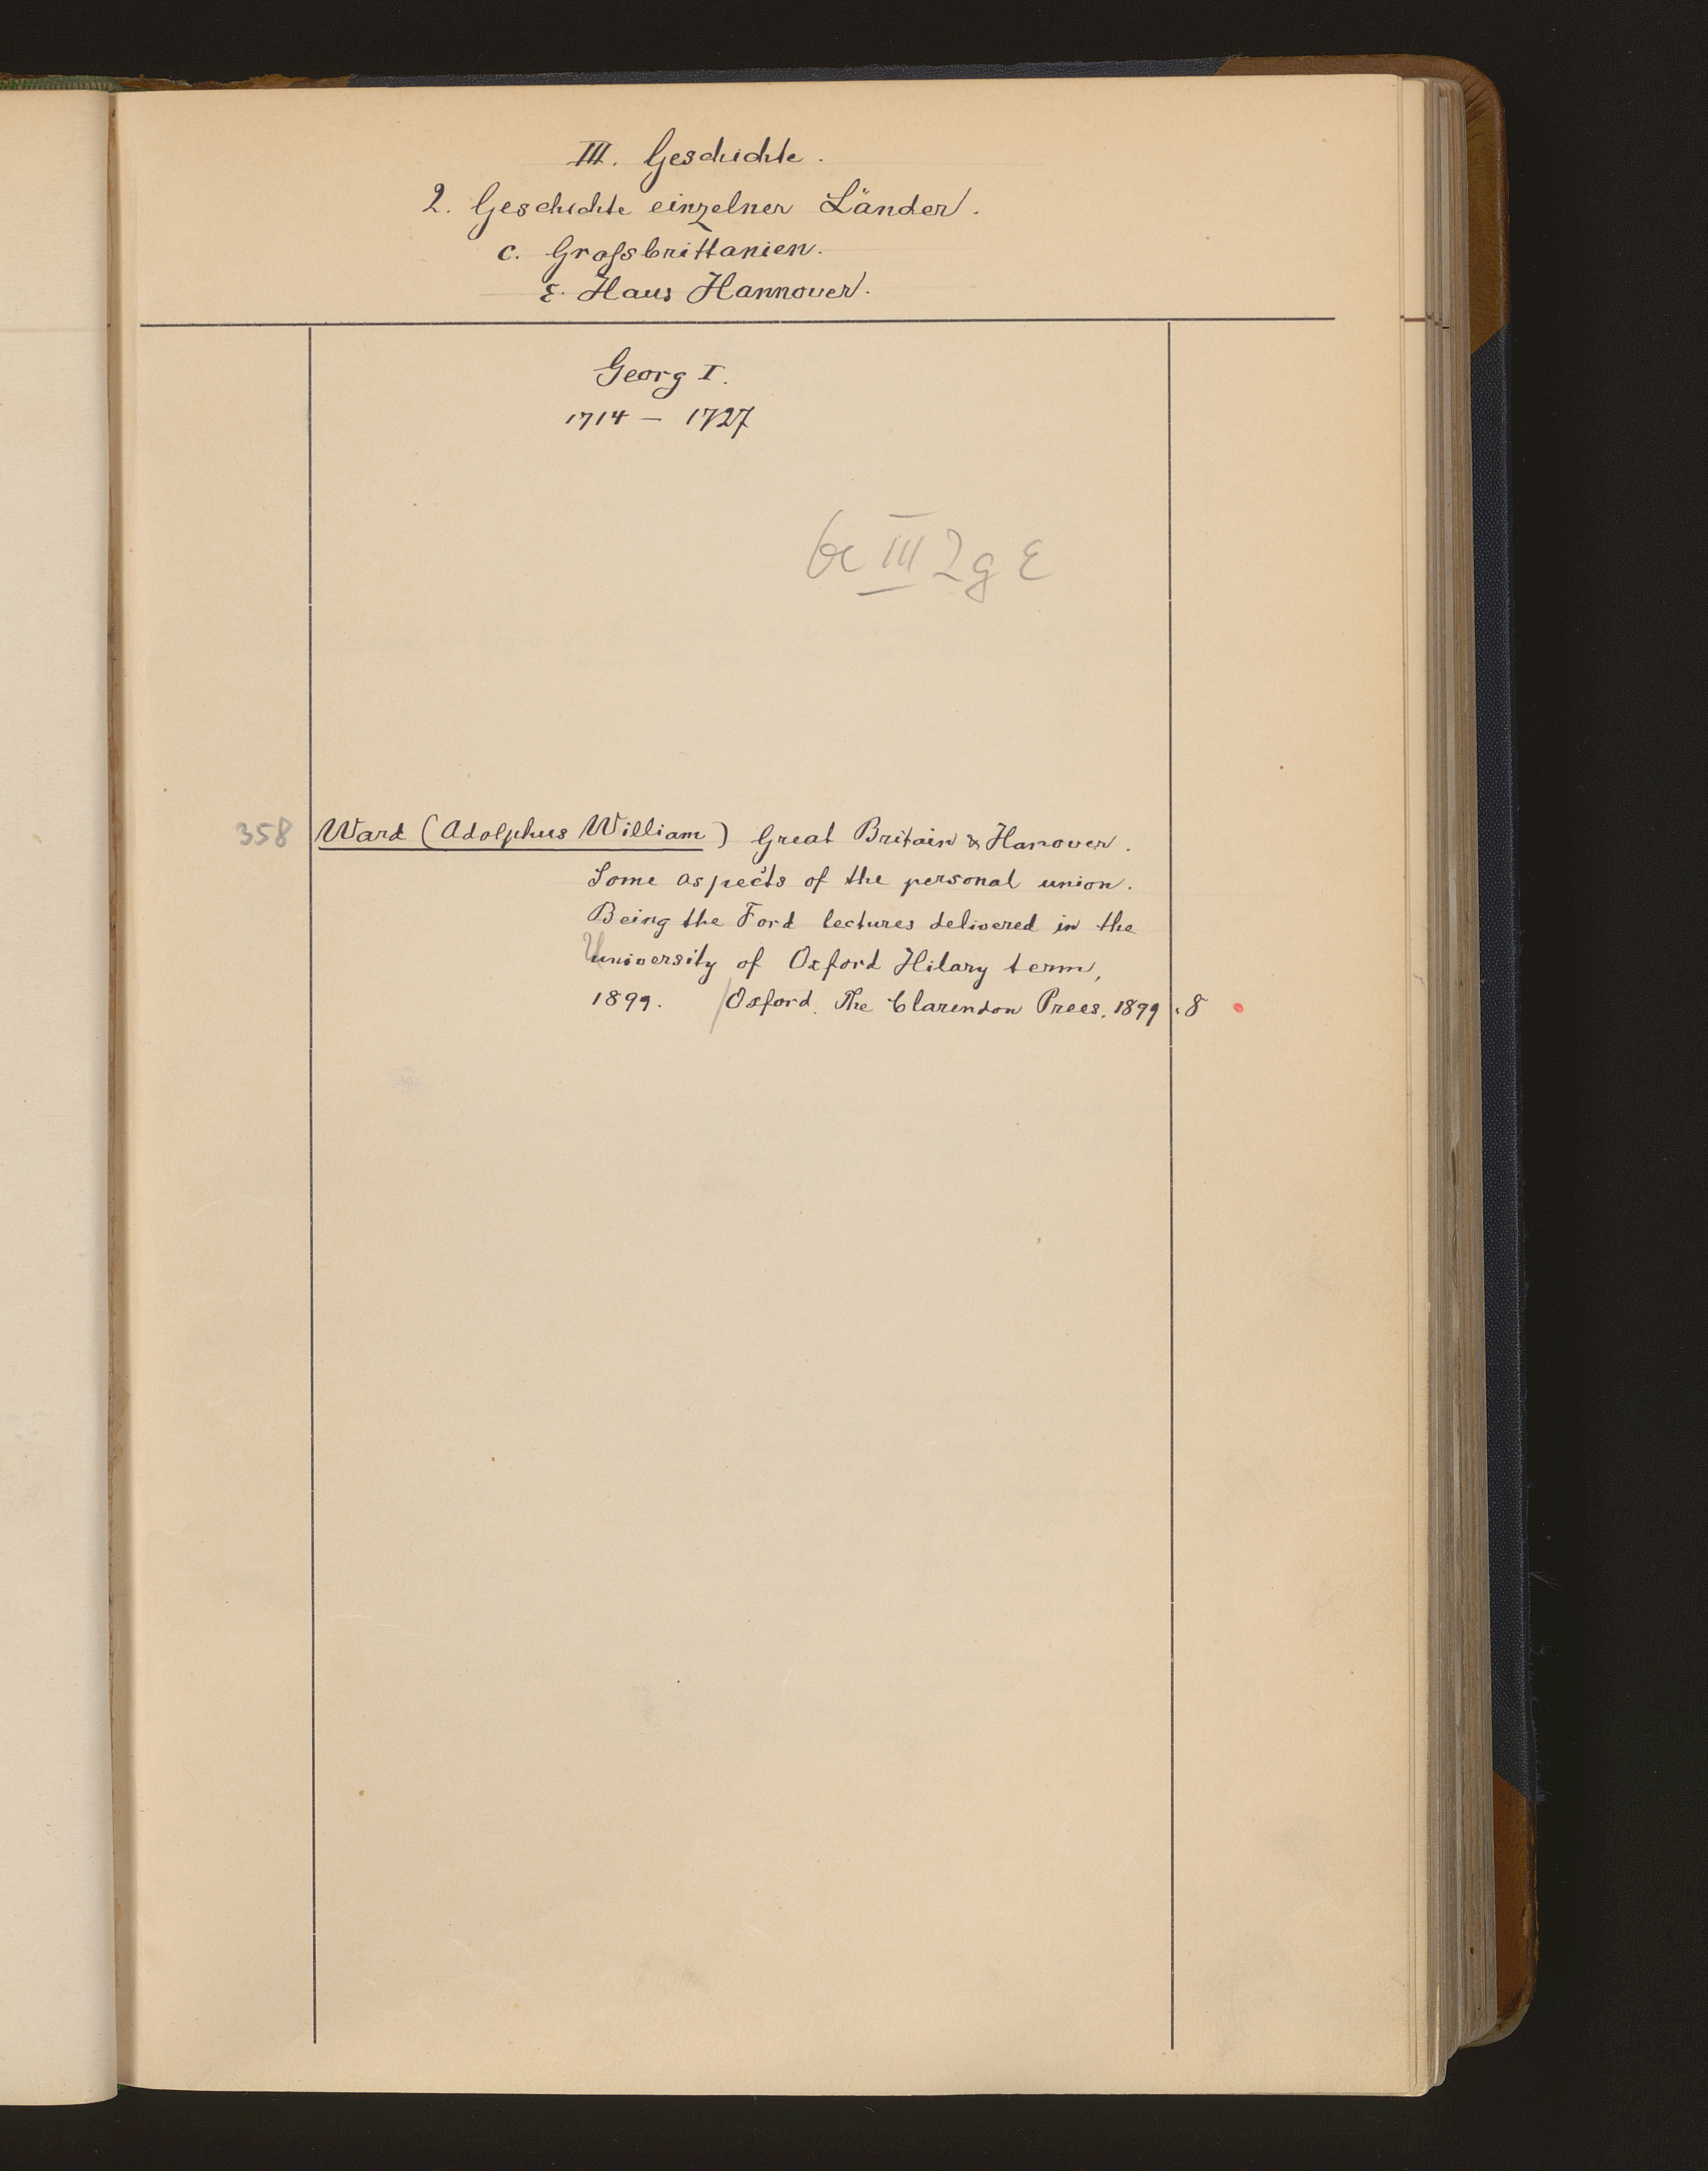 III. Geschichte.
2. Geschichte einzelner Länder.
c. Grossbrittanien.
ε. Haus Hannover.
Georg I.
1714 — 1727
III 2 g ε
358 Ward (Adolphus William) Great Britain & Hanover.
Some aspects of the personal union.
Being the Ford lectures delivered in the
University of Oxford Hilary term,
1899. /Oxford. The Clarendon Press. 1899. 8